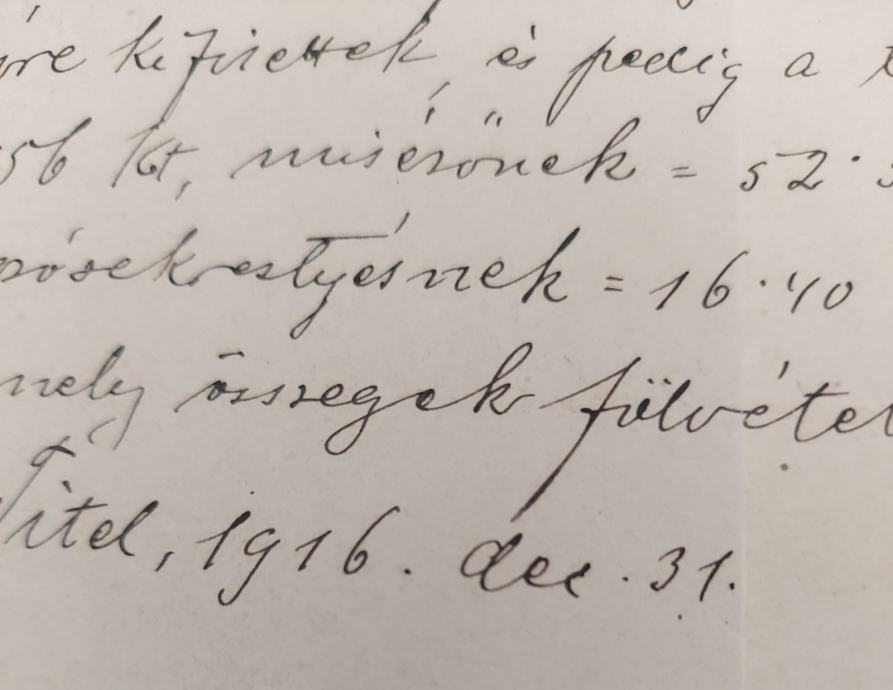 kifizettek, és pedig a
56 kt, misézőnek = 52.
sekrestyésnek = 16.40
mely összegek fölvétel
Titel, 1916. dec. 31.